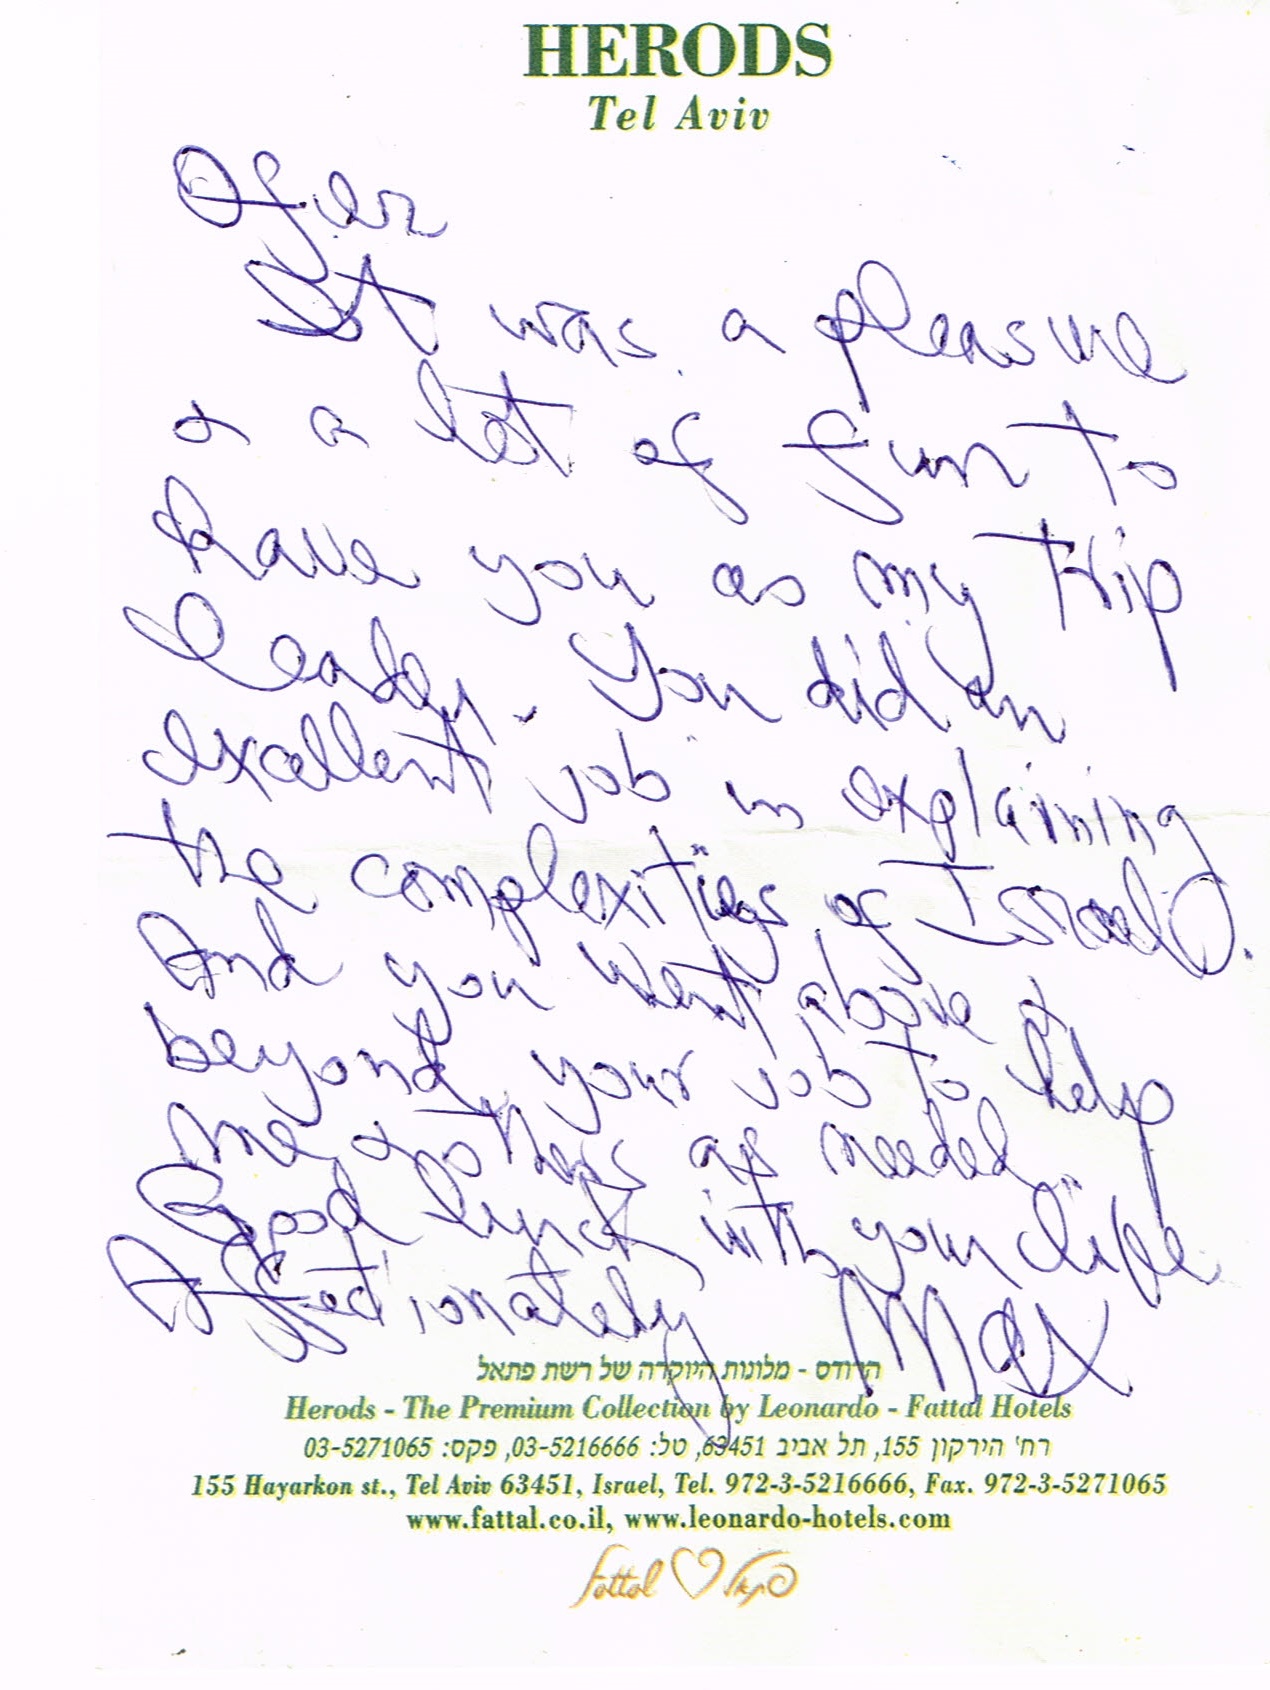 HERODS
Tel Aviv
Ofer
It was a pleasure
& a lot of fun to
have you as my trip
leader. You did an
excellent job in explaining
the complexities of Israel.
And you went above &
beyond your job to help
me & others as needed.
Good luck with your life
Affectionately Max
הרודס - מלונות היוקרה של רשת פתאל
Herods - The Premium Collection by Leonardo - Fattal Hotels
רח' הירקון 155, תל אביב 63451, טל: 03-5216666, פקס: 03-5271065
155 Hayarkon st., Tel Aviv 63451, Israel, Tel. 972-3-5216666, Fax. 972-3-5271065
www.fattal.co.il, www.leonardo-hotels.com
fattal פתאל